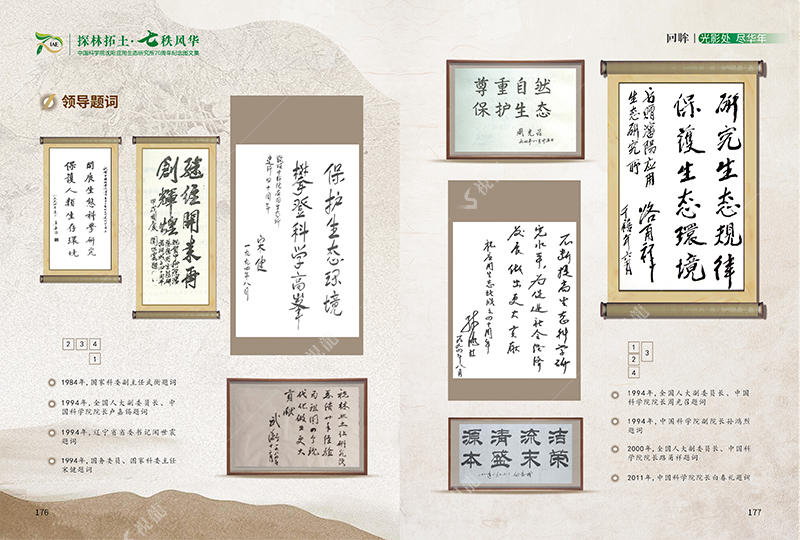 70
IAE
探林拓土·七秩风华
中国科学院沈阳应用生态研究所70周年纪念图文集
领导题词
开展生态科学研究
保护人类生存环境
继往开来再
创辉煌
保护生态环境
攀登科学高峰
宋健
一九九四年八月
2 3 4
1
1984年，国家科委副主任武衡题词
1994年，全国人大副委员长、中
国科学院院长卢嘉锡题词
1994年，辽宁省省委书记闻世震
题词
1994年，国务委员、国家科委主任
宋健题词
176
回眸
光影处 尽华年
尊重自然
保护生态
周光召
研究生态规律
保護生态環境
右贈瀋陽应用
生态研究所
路甬祥
不断提高生态科学研
究水平，为促进社会经济
发展做出更大贡献
一九九四年八月
洁荣
流末
清盛
源本
1
2 3
4
1994年，全国人大副委员长、中国
科学院院长周光召题词
1994年，中国科学院副院长孙鸿烈
题词
2000年，全国人大副委员长、中国科
学院院长路甬祥题词
2011年，中国科学院院长白春礼题词
177